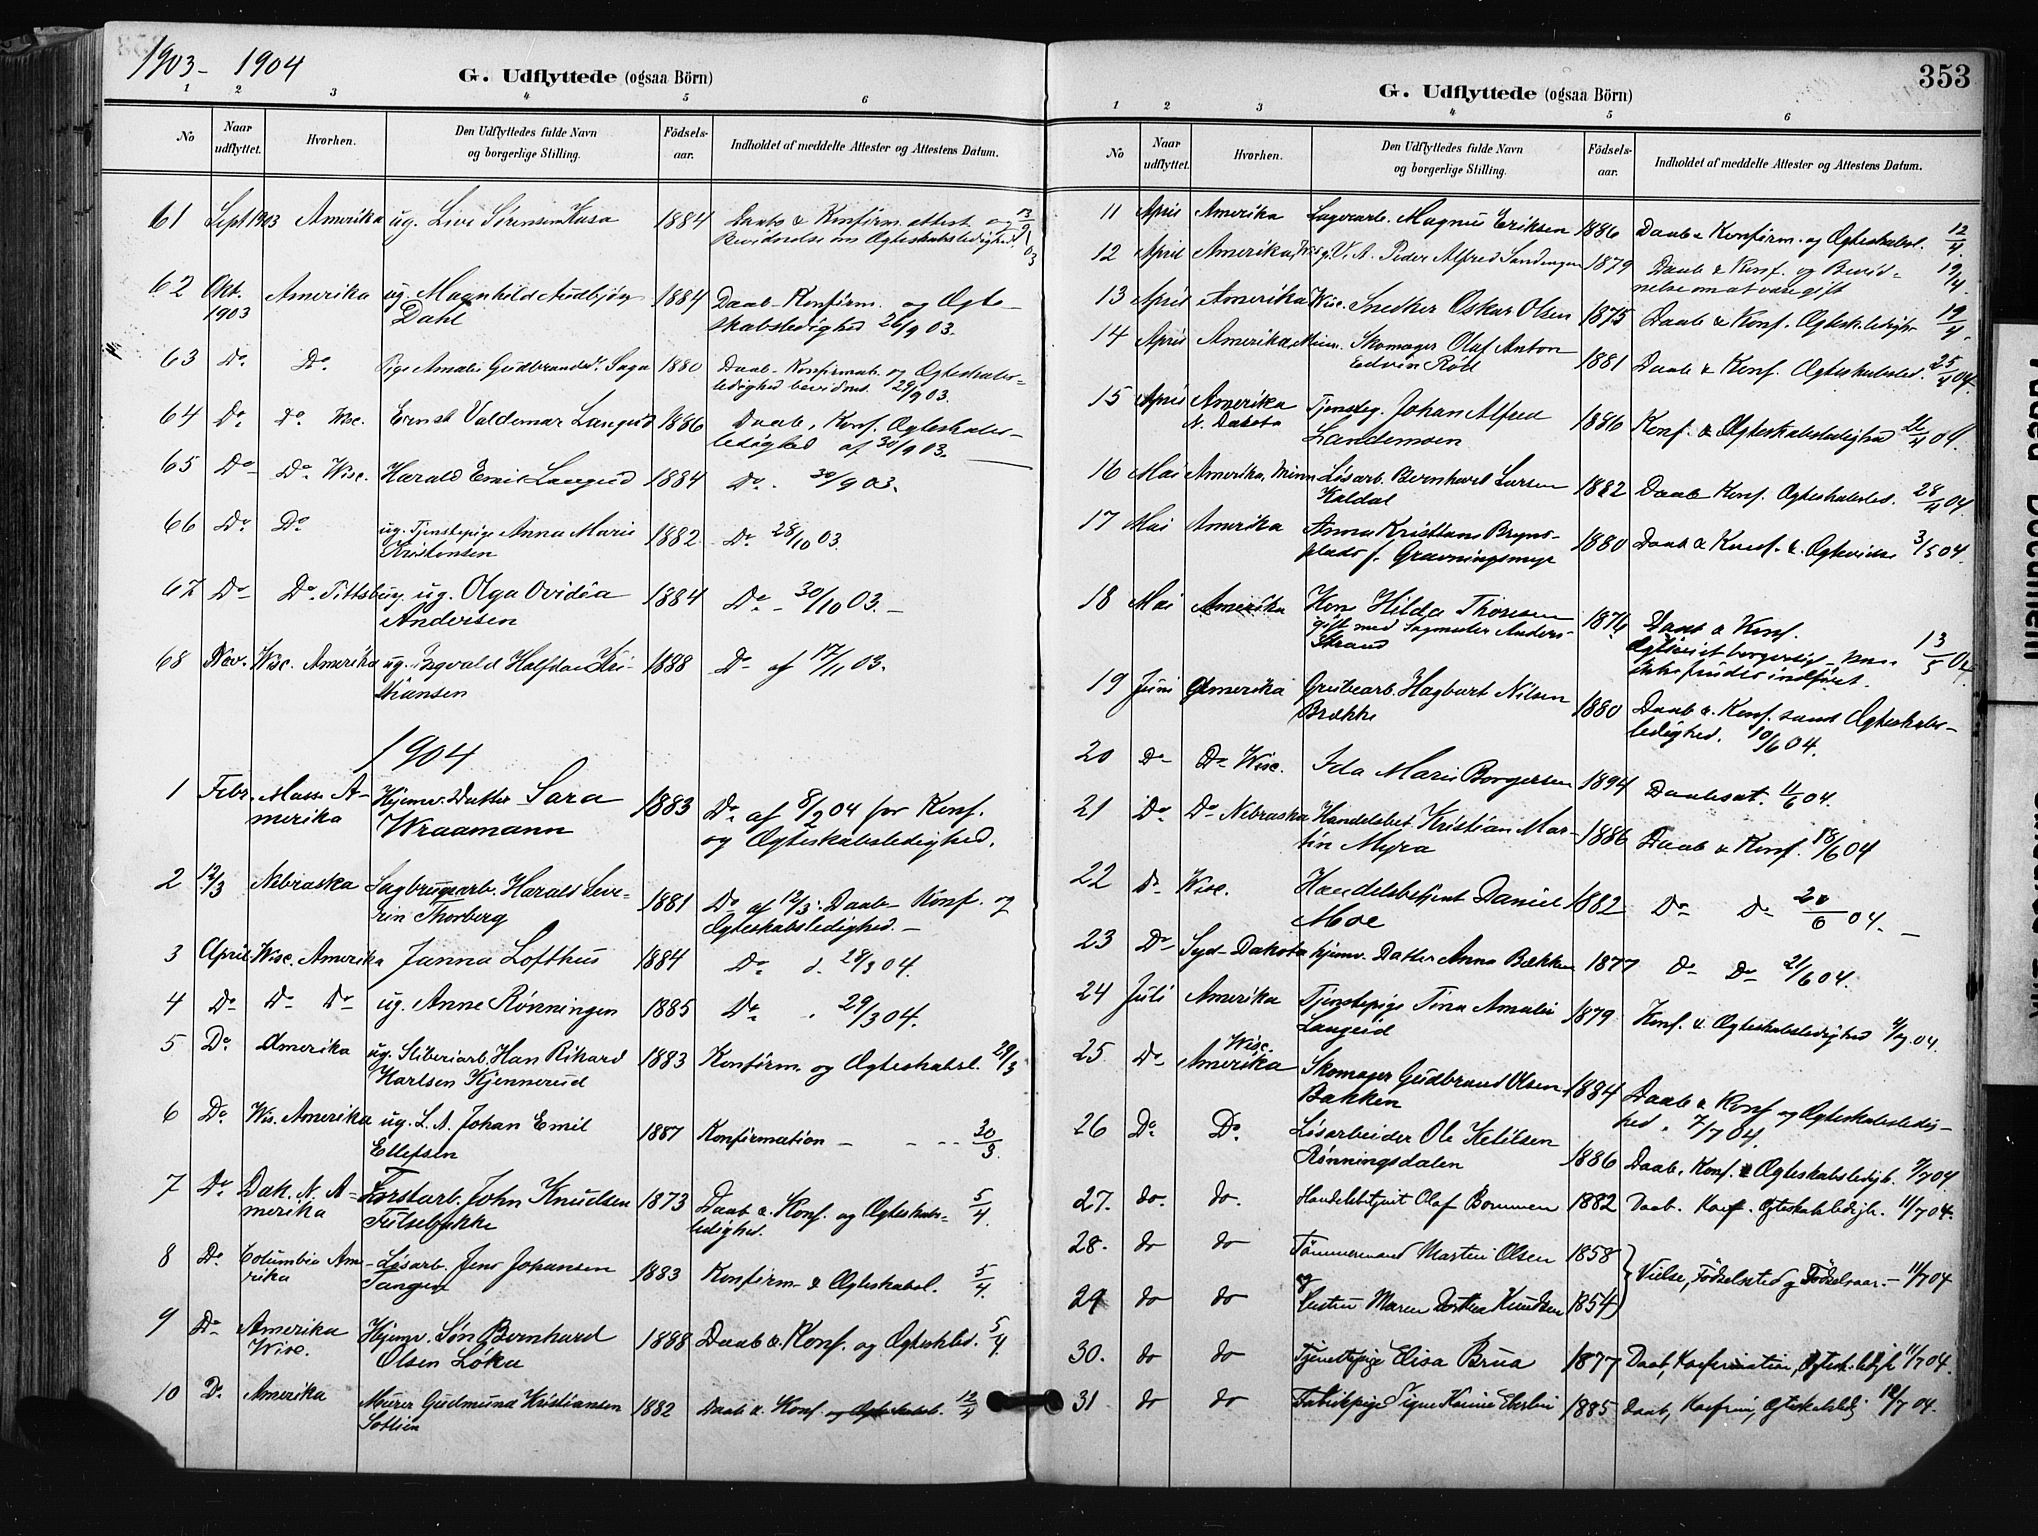 1903 - 1904
G. Udflyttede (ogsaa Börn)
1 2 3 4 5 6
No
Naar udflyttet.
Hvorhen.
Den Udflyttedes fulde Navn og borgerlige Stilling.
Födsels-aar.
Indholdet af meddelte Attester og Attestens Datum.
61 Sept 1903 Amerika ug. Live Sörensen Kasa 1884 Daabs & Konfirm. attest og 13/9 03
Bevidnelse om Ægteskabsledighed
62 Okt. 1903 Amerika ug. Magnhild Audbjörg 1884 Daab- Konfirm. og Ægte-
Dahl skabsledighed 26/9 03.
63 Do. Do. Pige Amalie Gudbrandsd. Saga 1880 Daab- Konfirmat. og Ægteskabs-
ledighed bevidnet 29/9 03.
64 Do Do Wisc. Ernst Valdemar Langud 1886 Daab, Konf. Ægteskabs-
ledighed af 30/9 03.
65 Do Do. Wisc. Harald Emil Langud 1884 Do. 30/9 03.
66 Do Do ug. Tjenstepige Anna Marie 1882 Do. 28/10 03.
Kristensen
67 Do Do. Pittsburg. ug. Olga Ovidia 1884 Do - 30/10 03. -
Andersen
68 Nov. Wisc. Amerika ug. Ingvald Halfdan Kri- 1888 Do af 17/11 03.
stiansen
1904
1 Febr. Mass. A- Hjemv. Datter Sara 1883 Do af 8/2 04 for Konf.
merika Wraamann og Ægteskabsledighed.
2 12/3 Nebraska Sagbrugsarb. Harald Seve- 1881 Do af 12/3: Daab- Konf. og
rin Thorberg Ægteskabsledighed. -
3 April Wisc. Amerika Janna Lofthus 1884 Do d. 28/3 04.
4 Do Do Do ug. Anne Rönningen 1885 Do . 29/3 04.
5 Do. Amerika ug. Sliberiarb. Han Rikard 1883 Konfirm. og Ægteskabsl. 29/3
Karlsen Kjennerud
6 Do. Wis. Amerika ug. L. A. Johan Emil 1887 Konfirmation - - - - 30/3.
Ellefsen
7 Do. Dak. N. A- Forstarb. John Knudsen 1873 Daab & Konf. og Ægteskabs- 5/4.
merika ledighed.
8 Do. Columbia Am- Lösarb. Jens Johansen 1883 Konfirm. & Ægteskabsl. 5/4.
rika Tangen
9 Do Amerika Hjemv. Sön Bernhard 1888 Daab & Konf. og Ægteskled. 5/4.
Wisc. Olsen Löka
10 Do Amerika Murer Gudmund Kristiansen 1882 Daab & Konf. og Ægteskabsl. 12/4
353
G. Udflyttede (ogsaa Börn)
1 2 3 4 5 6
No
Naar udflyttet.
Hvorhen.
Den Udflyttedes fulde Navn og borgerlige Stilling.
Födsels-aar.
Indholdet af meddelte Attester og Attestens Datum.
11 April Amerika Lagerarb. Magnus Eriksen 1886 Daab & Konfirm. og Ægteskabsl. 12/4.
12 April Amerika, Wisc. Peder Alfred Sandengen 1879 Daab & Konf. og Bevid- 19/4
nelse om at være gift
13 April Amerika Wisc. Snedker Oskar Olsen 1875 Daab & Konf. Ægteskledigh. 19/4.
14 April Amerika, Minn. Skomager Olaf Anton 1881 Daab & Konf. Ægteskabsled. 25/4 04.
Edvin Röed
15 April Amerika Tjensteg. Johan Alfred 1886 Konf. & Ægteskabsledighed 26/4 04.
N. Dakota Landemoen
16 Mai Amerika, Minn Lösarb. Bernhard Larsen 1882 Daab Konf. Ægteskabsled. 28/4 04.
Kaldal
17 Mai Amerika Anna Kristians Bryns- 1880 Daab & Konf. & 3/5 04.
plads f. Gravningsmyr
18 Mai Amerika Kone Hilda Thoresen 1876 Daab & Konf.
gift med Sagmester Anders Strand 13/5 04.
ikke indfört.
19 Juni Amerika Grubearb. Hagbart Nilsen 1880 Daab & Konf. samt Ægteskabs-
Brække ledighed. 10/6 04.
20 Do Do Wisc. Ida Marie Borgersen 1894 Daabsat. 11/6 04.
21 Do Do Nebraska Handelsbet. Kristian Mar- 1886 Daab & Konf. 18/6 04
tin Myra
22 Do Wisc. Handelsbetjent Daniel 1882 Do Do 20/6 04. -
Moe
23 Do Syd-Dakota hjemv. Datter Anna Bækken 1877 Do Do 21/6 04.
24 Juli Amerika Tjenstepige Tina Amalie 1879 Konf. & Ægteskabsledighed 4/7 04.
Langeid
25 Do Wisc. Amerika Skomager Gudbrand Olsen 1884 Daab & Konf og Ægteskabsledig-
Bakken hed. 7/7 04.
26 Do Do. Lösarbeider Ole Ketilsen 1886 Daab, Konf. & Ægteskabsledigh. 9/7 04
Rönningsdalen
27. do. do. Handelsbetjent Olaf Bommen 1882 Daab. Konf. Ægteskabsledigh. 11/7 04.
28. do do Tömmermand Martin Olsen 1858 } Vielse, Födselssted og Födselsaar. - 11/7 04
29 do do og Hustru Maren Dorthea Knudsen 1854
30. do do Tjenestepige Elisa Brua 1877 Daab, Konfirmation, Ægtesk.ledigh 11/7 04.
31 do do Fabrikpige Signe Karine 1885 Daab, Konfirm, Ægteskabsledi 12/7 04.